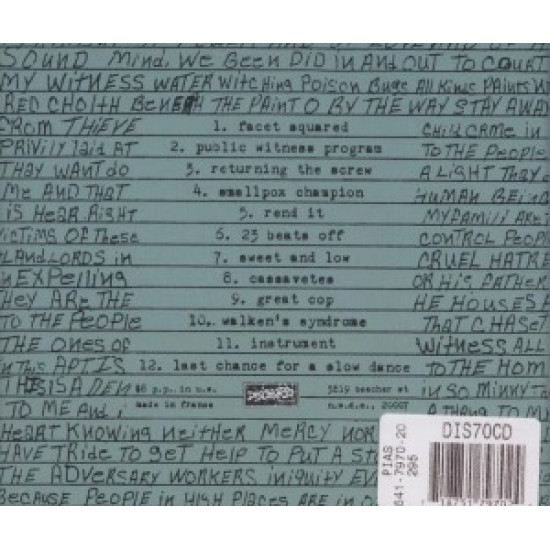 SOUND MIND, WE BEEN DID IN AND OUT TO COURT
MY WITNESS WATER WITCHING POISON BUGS ALL KINDS PAINTS
RED CHOITH BENEATH THE PAINT O BY THE WAY STAY AWAY
FROM THIEVE 1. facet squared CHILD CAME IN
PRIVILY LAID AT 2. public witness program TO THE PEOPLE
THAY WANT DO 3. returning the screw A LIGHT THEY
ME AND THAT 4. smallpox champion HUMAN BEING
IS HEAR RIGHT 5. rend it MY FAMILY ARE
VICTIMS OF THESE 6. 23 beats off CONTROL PEOPLE
LANDLORDS IN 7. sweet and low CRUEL HATRE
IN EXPELLING 8. cassavetes OR HIS FATHER
THEY ARE THE 9. great cop HE HOUSES
TO THE PEOPLE 10. walken's syndrome THAT CHASE
THE ONES OF 11. instrument WITNESS ALL
IN THIS APT IS 12. last chance for a slow dance TO THE HOM
THIS IS A DEN $8 p.p. in u.s. DISCHORD 3819 beecher st IN SO MINNY
TO ME AND I made in france n.w.d.c., 20007 A THANG TO
HEART KNOWING NEITHER MERCY NOR
HAVE TRIDE TO GET HELP TO PUT A STO
THE ADVERSARY WORKERS INIQUITY EV
BECAUSE PEOPLE IN HIGH PLACES ARE IN
DIS70CD
PIAS
641-7970-20
295